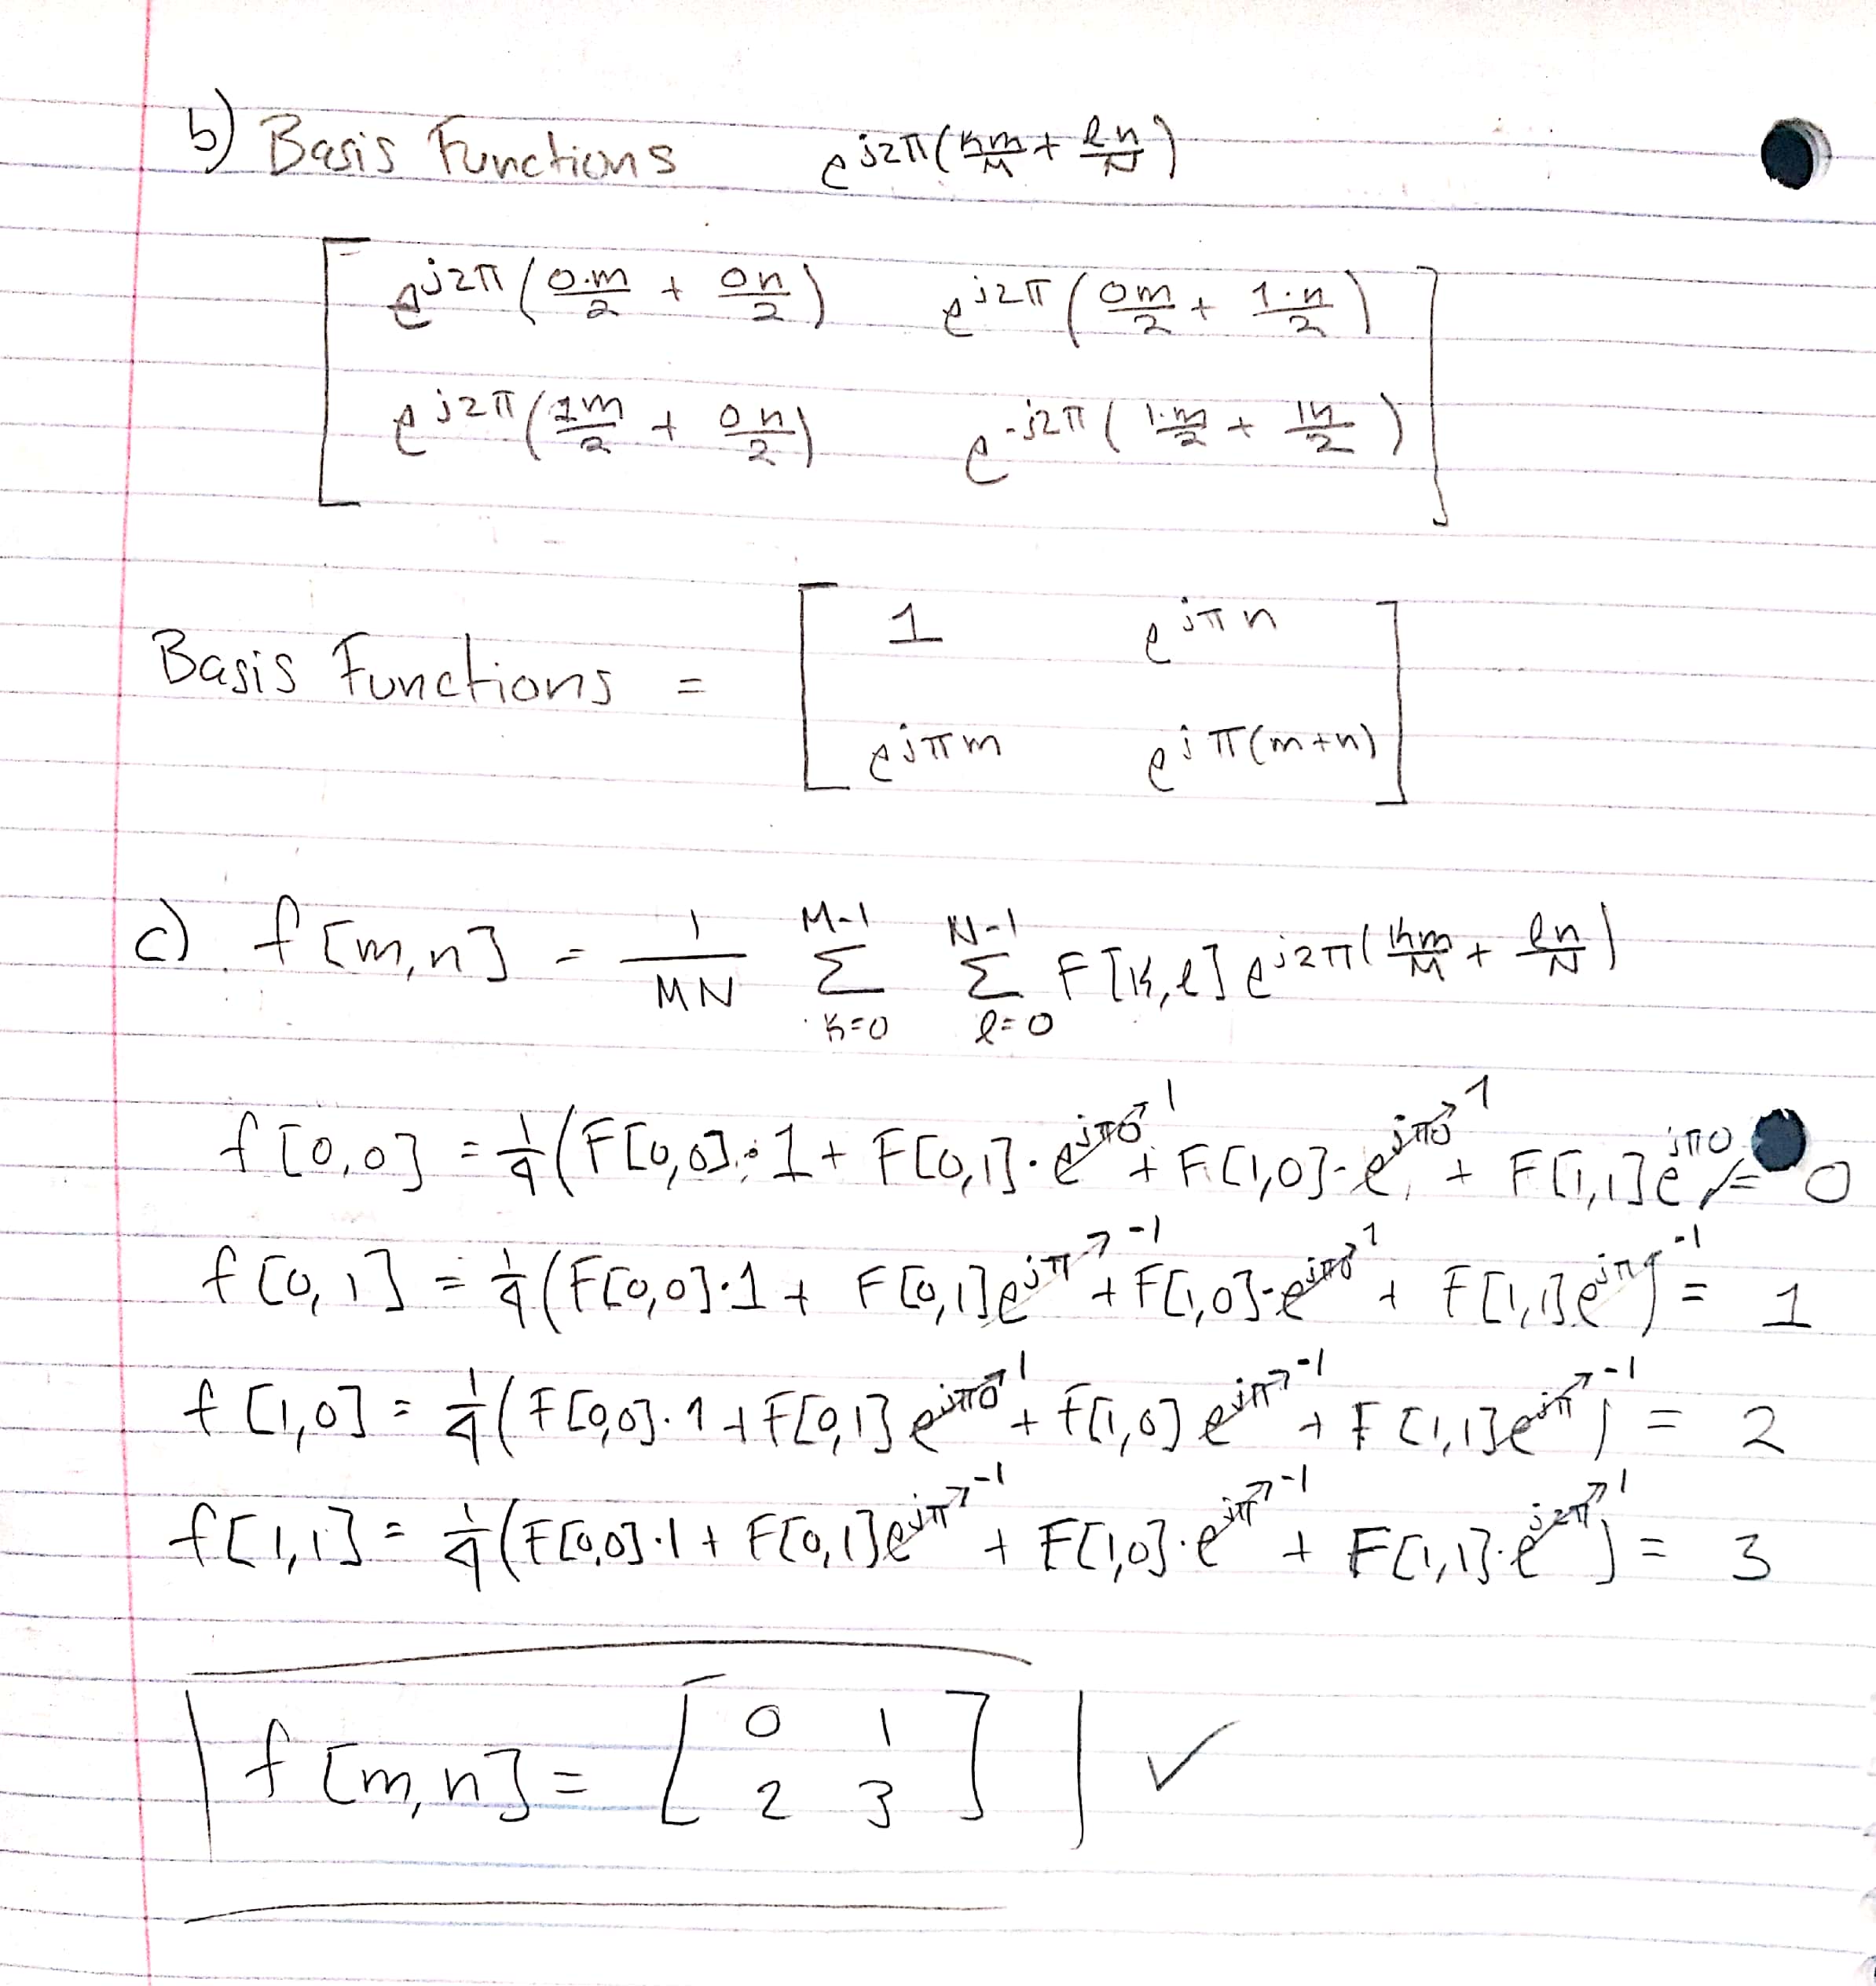 b) Basis Functions e^{j2π(km/M + ln/N)}
[ e^{j2π(0·m/2 + 0n/2)} e^{j2π(0m/2 + 1·n/2)}
e^{j2π(1m/2 + 0n/2)} e^{-j2π(1·m/2 + 1n/2)} ]
Basis Functions = [ 1 e^{jπn}
e^{jπm} e^{jπ(m+n)} ]
c) f[m,n] = 1/MN Σ_{k=0}^{M-1} Σ_{l=0}^{N-1} F[k,l] e^{j2π(km/M + ln/N)}
f[0,0] = 1/4 (F[0,0]·1 + F[0,1]·e^{jπ0}→1 + F[1,0]·e^{jπ0}→1 + F[1,1]e^{jπ0}) = 0
f[0,1] = 1/4 (F[0,0]·1 + F[0,1]e^{jπ}→-1 + F[1,0]·e^{jπ0}→1 + F[1,1]e^{jπ}→-1) = 1
f[1,0] = 1/4 (F[0,0]·1 + F[0,1]e^{jπ0}→1 + F[1,0]e^{jπ}→-1 + F[1,1]e^{jπ}→-1) = 2
f[1,1] = 1/4 (F[0,0]·1 + F[0,1]e^{jπ}→-1 + F[1,0]·e^{jπ}→-1 + F[1,1]·e^{j2π}→1) = 3
f[m,n] = [ 0 1
2 3 ] ✓